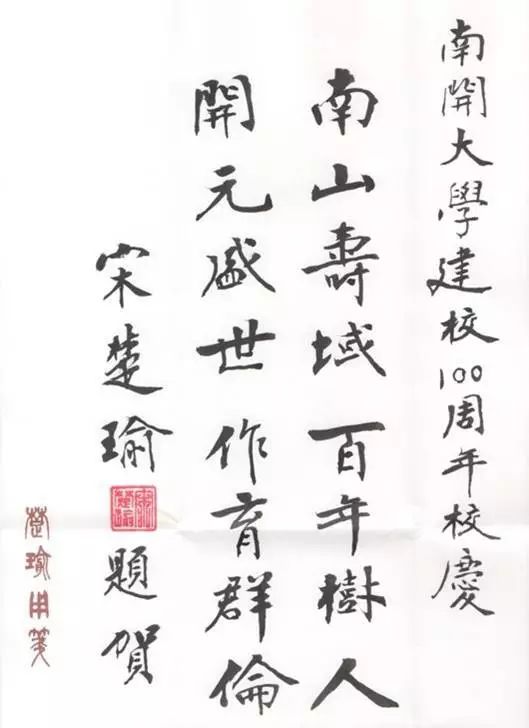 南開大學建校100周年校慶
南山壽域 百年樹人
開元盛世 作育群倫
宋楚瑜 題賀
楚瑜用箋